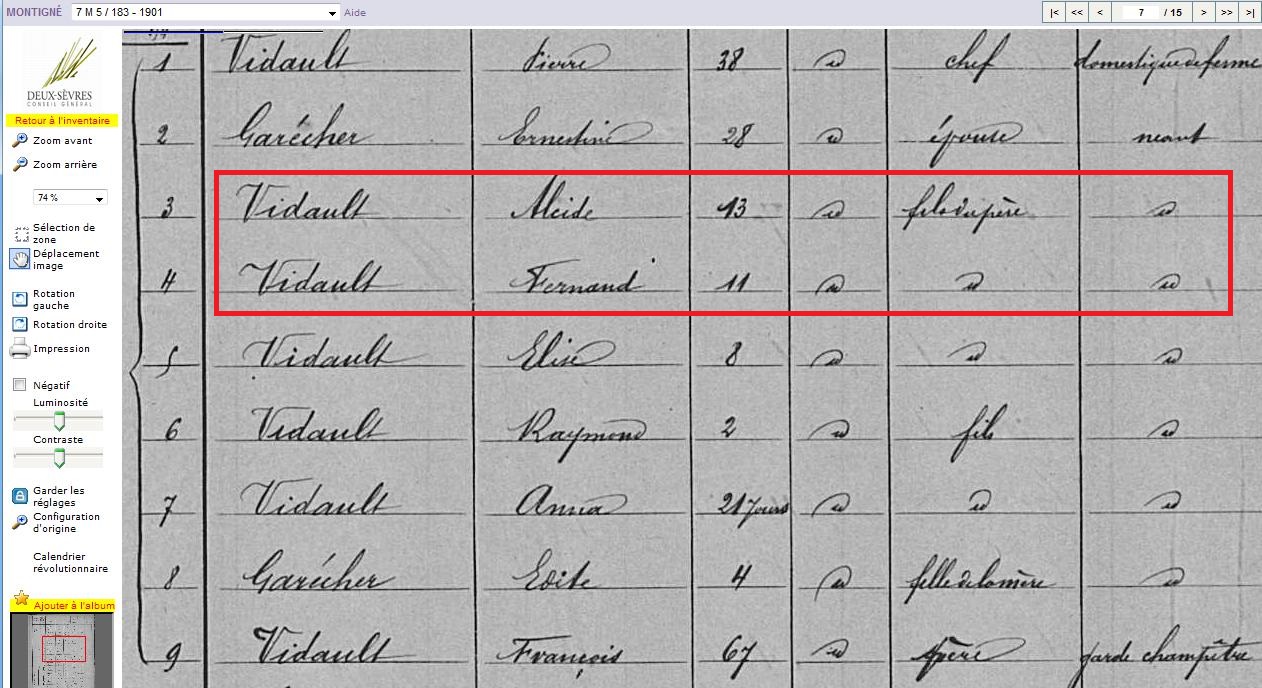 MONTIGNÉ 7 M 5 / 183 - 1901 Aide |< << < 7 / 15 > >> >|
DEUX-SÈVRES
CONSEIL GÉNÉRAL
Retour à l'inventaire
Zoom avant
Zoom arrière
74 %
Sélection de
zone
Déplacement
image
Rotation
gauche
Rotation droite
Impression
Négatif
Luminosité
Contraste
Garder les
réglages
Configuration
d'origine
Calendrier
révolutionnaire
Ajouter à l'album
1 Vidault Pierre 38 id chef domestique de ferme
2 Garécher Ernestine 28 id épouse neant
3 Vidault Alcide 13 id fils du père id
4 Vidault Fernand 11 id id id
5 Vidault Elise 8 id id id
6 Vidault Raymond 2 id fils id
7 Vidault Anna 21 jours id id id
8 Garécher Edite 4 id felle de la mère id
9 Vidault François 67 id père garde champêtre